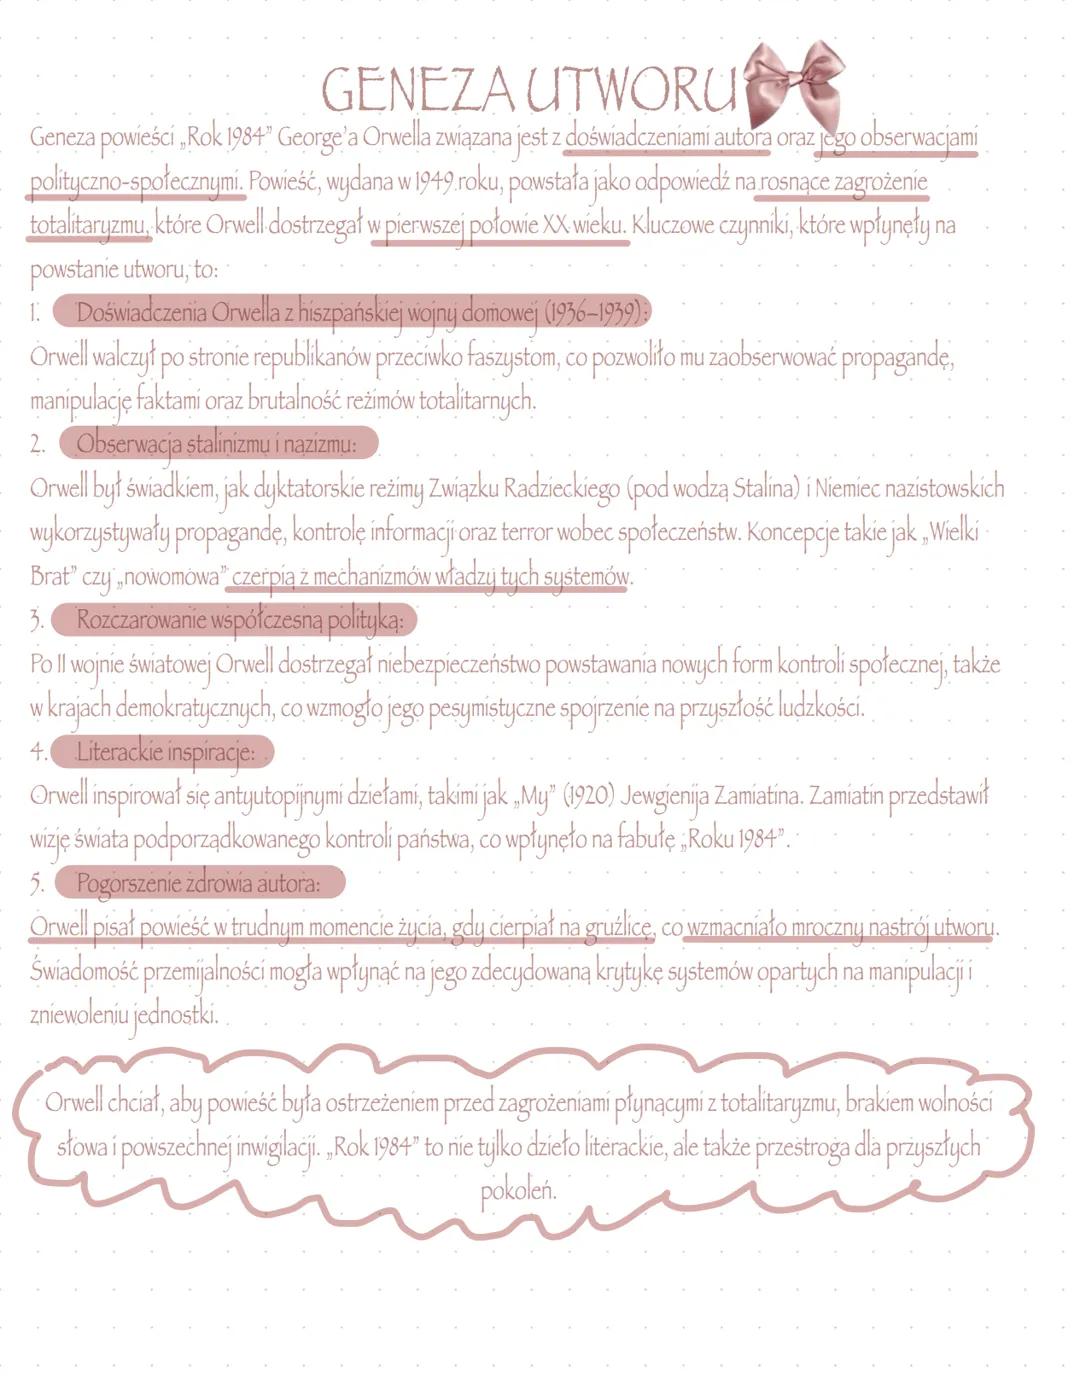 GENEZA UTWORU
Geneza powieści „Rok 1984” George'a Orwella związana jest z doświadczeniami autora oraz jego obserwacjami
polityczno-społecznymi. Powieść, wydana w 1949 roku, powstała jako odpowiedź na rosnące zagrożenie
totalitaryzmu, które Orwell dostrzegał w pierwszej połowie XX wieku. Kluczowe czynniki, które wpłynęły na
powstanie utworu, to:
1. Doświadczenia Orwella z hiszpańskiej wojny domowej (1936–1939):
Orwell walczył po stronie republikanów przeciwko faszystom, co pozwoliło mu zaobserwować propagandę,
manipulację faktami oraz brutalność reżimów totalitarnych.
2. Obserwacja stalinizmu i nazizmu:
Orwell był świadkiem, jak dyktatorskie reżimy Związku Radzieckiego (pod wodzą Stalina) i Niemiec nazistowskich
wykorzystywały propagandę, kontrolę informacji oraz terror wobec społeczeństw. Koncepcje takie jak „Wielki
Brat” czy „nowomowa” czerpią z mechanizmów władzy tych systemów.
3. Rozczarowanie współczesną polityką:
Po II wojnie światowej Orwell dostrzegał niebezpieczeństwo powstawania nowych form kontroli społecznej, także
w krajach demokratycznych, co wzmogło jego pesymistyczne spojrzenie na przyszłość ludzkości.
4. Literackie inspiracje:
Orwell inspirował się antyutopijnymi dziełami, takimi jak „My” (1920) Jewgienija Zamiatina. Zamiatin przedstawił
wizję świata podporządkowanego kontroli państwa, co wpłynęło na fabułę „Roku 1984”.
5. Pogorszenie zdrowia autora:
Orwell pisał powieść w trudnym momencie życia, gdy cierpiał na gruźlicę, co wzmacniało mroczny nastrój utworu.
Świadomość przemijalności mogła wpłynąć na jego zdecydowaną krytykę systemów opartych na manipulacji i
zniewoleniu jednostki.
Orwell chciał, aby powieść była ostrzeżeniem przed zagrożeniami płynącymi z totalitaryzmu, brakiem wolności
słowa i powszechnej inwigilacji. „Rok 1984” to nie tylko dzieło literackie, ale także przestroga dla przyszłych
pokoleń.